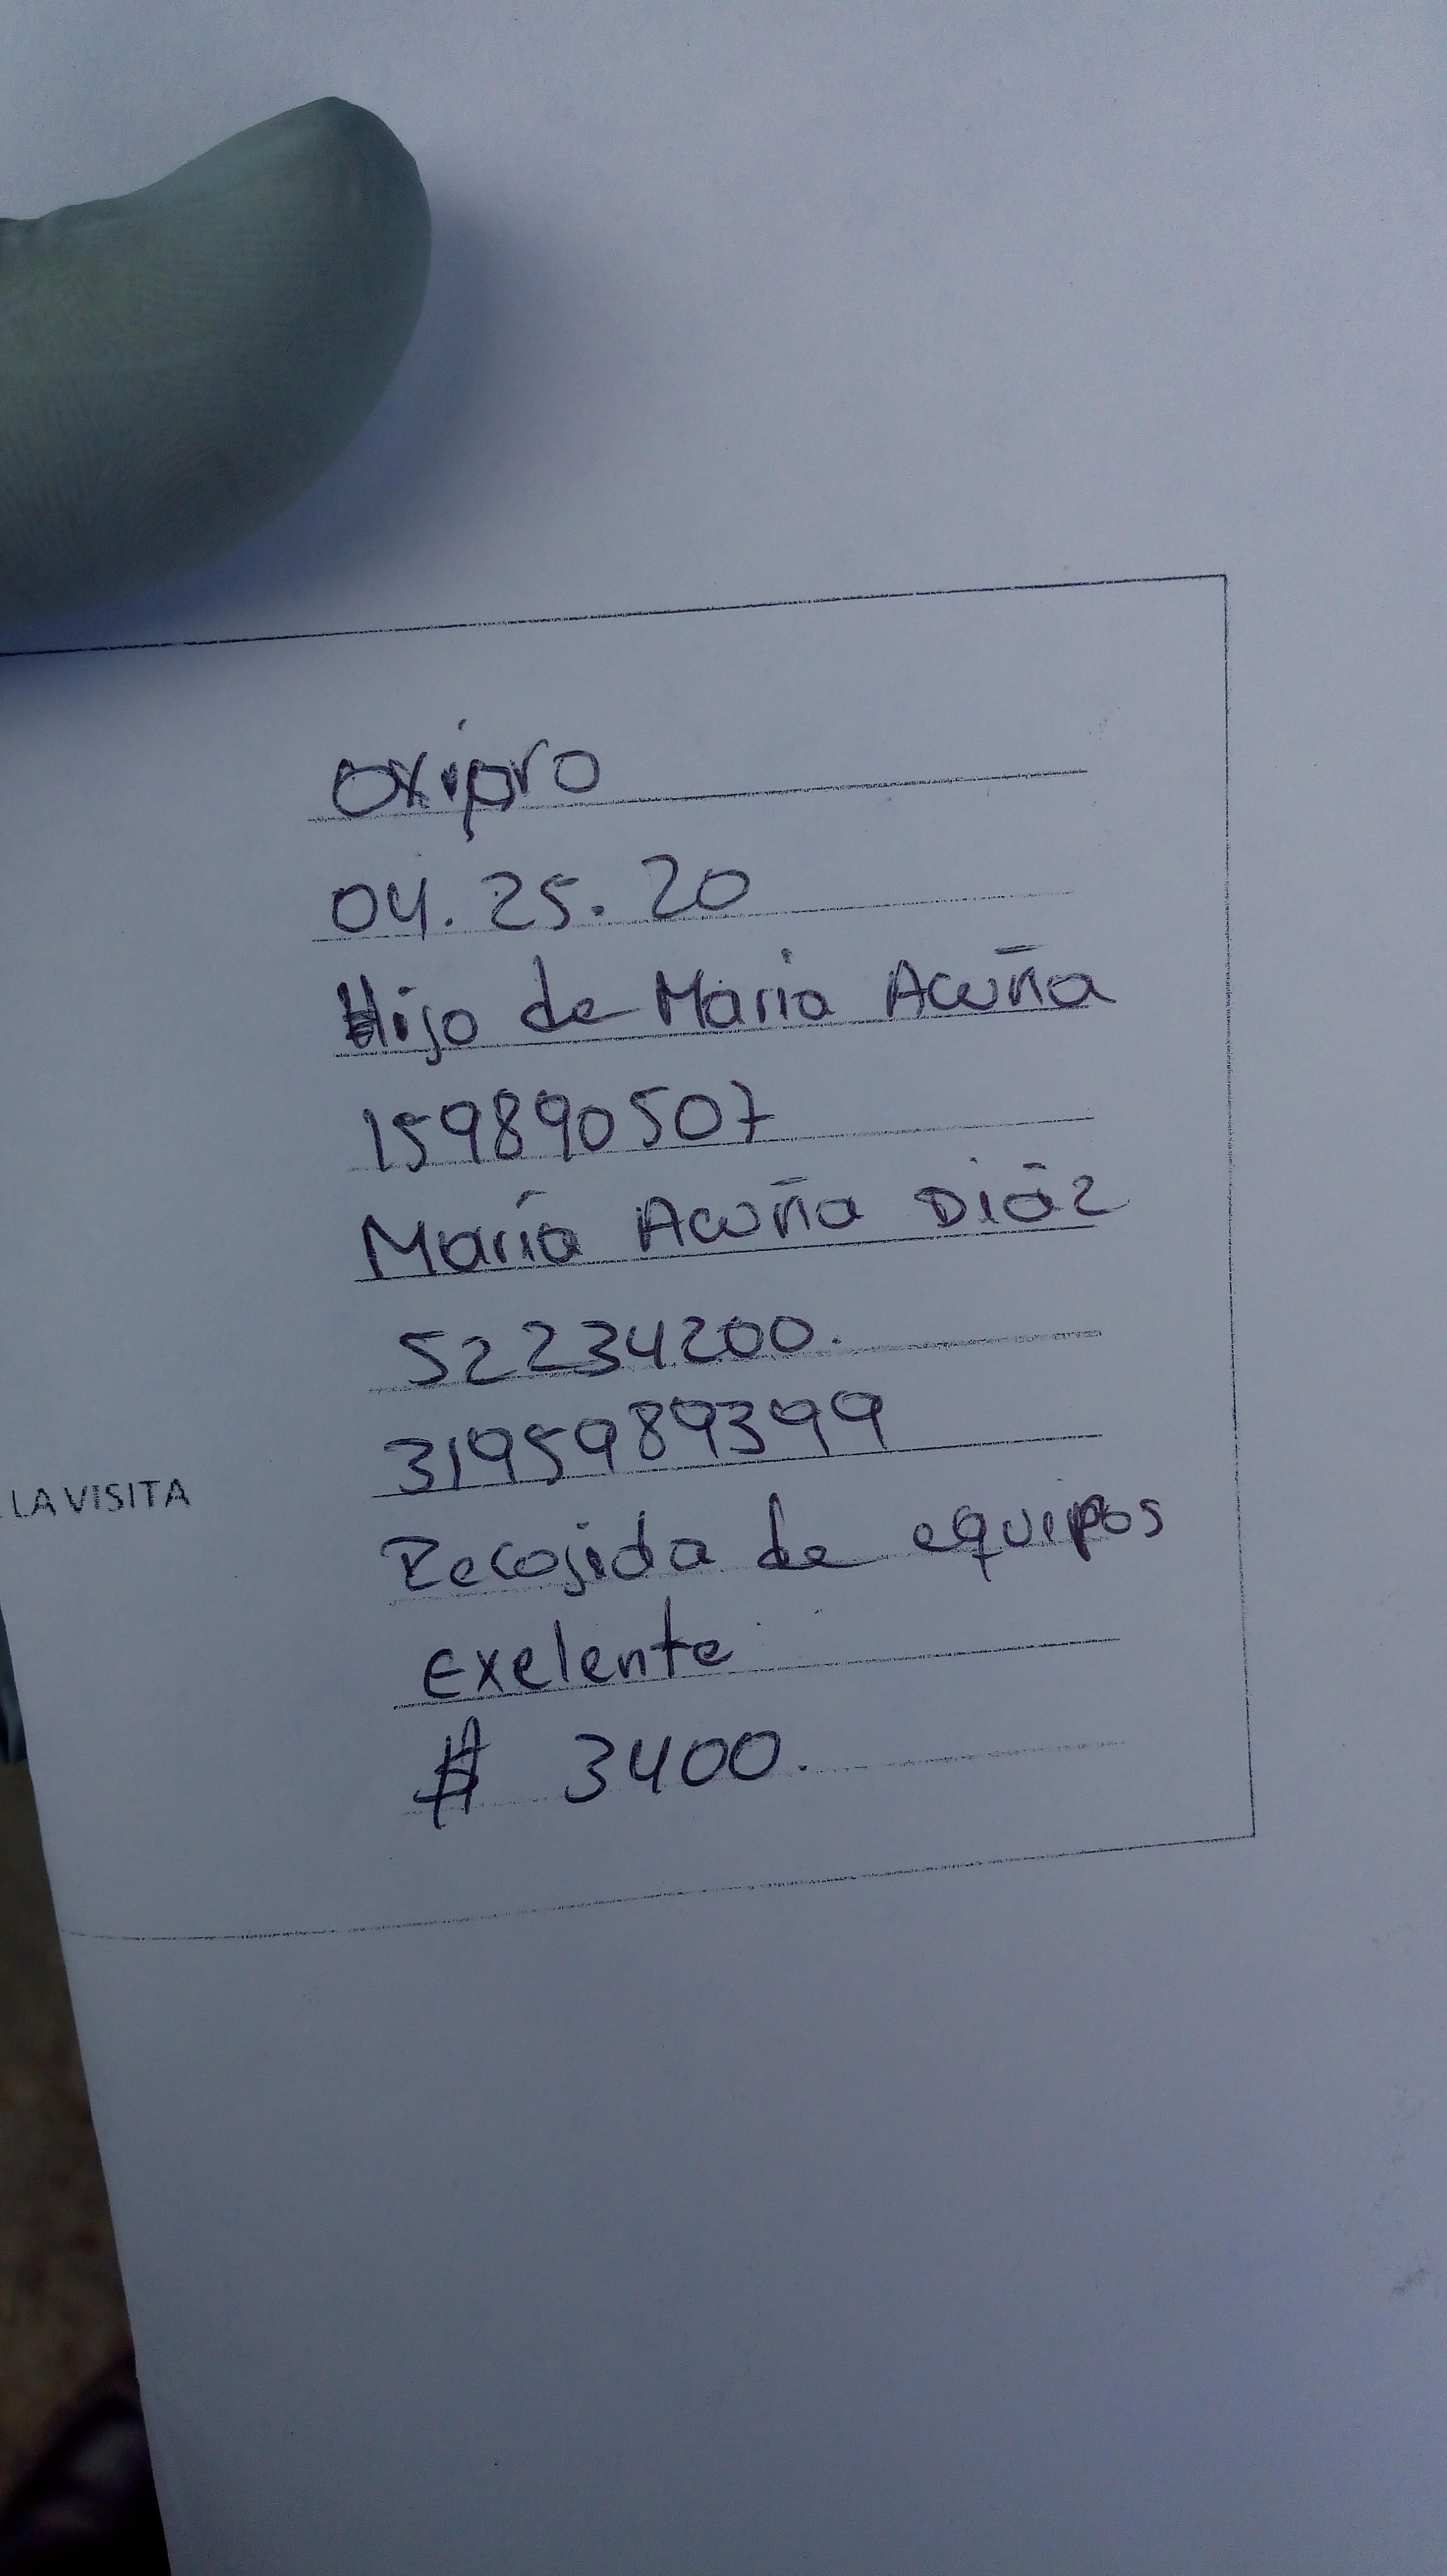 oxipro
04.25.20
Hijo de Maria Acuña
159890507
María Acuña Diáz
52234200.
3195989399
LA VISITA
Recojida de equipos
Exelente
# 3400.